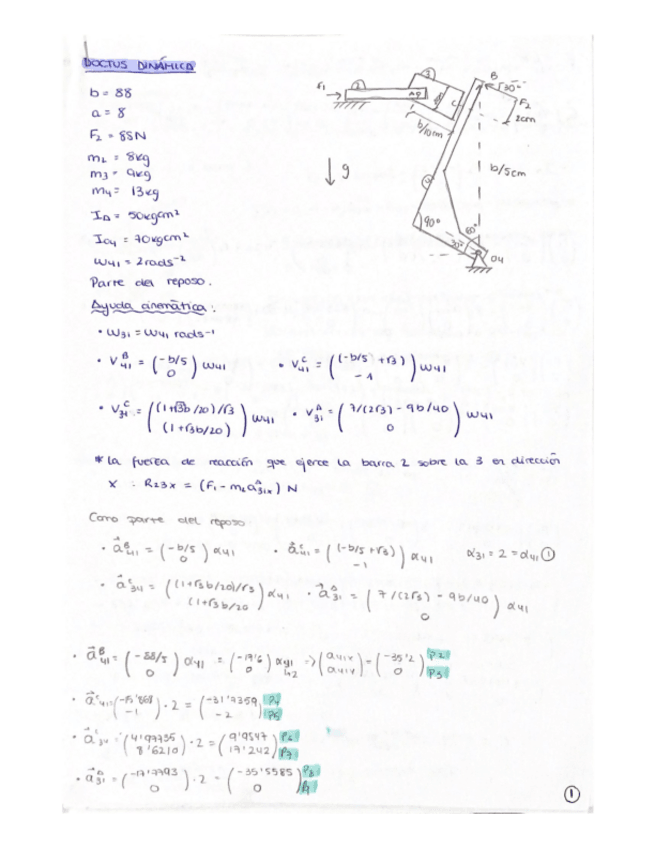 DOCTUS DINÁMICA
b = 88
a = 8
F₂ = 85N
m₂ = 8kg
m₃ = 9kg
m₄ = 13kg
I_A = 50kgcm²
I_O4 = 70kgcm²
ω₄₁ = 2rads⁻²
Parte del reposo.
F₁
2
3
C
b/10cm
B
30°
F₂
2cm
b/5cm
g
4
90°
60°
30°
O4
Ayuda cinemática:
• ω₃₁ = ω₄₁ rads⁻¹
• V₄₁ᴮ = (-b/5 0) ω₄₁ • V₄₁ᶜ = ((-b/5 + √3) -1) ω₄₁
• V₃₁ᶜ = ((1+√3b/20)/√3 (1+√3b/20)) ω₄₁ • V₃₁ᴬ = (7/(2√3) - 9b/40 0) ω₄₁
* La fuerza de reacción que ejerce la barra 2 sobre la 3 en dirección
x : R₂₃ₓ = (F₁ - m₂a₃₁ₓᴬ) N
Como parte del reposo
• a⃗₄₁ᴮ = (-b/5 0) α₄₁ • a⃗₄₁ᶜ = ((-b/5 + √3) -1) α₄₁ α₃₁ = 2 = α₄₁ ①
• a⃗₃₁ᶜ = ((1+√3b/20)/√3 (1+√3b/20) α₄₁ • a⃗₃₁ᴬ = (7/(2√3) - 9b/40 0) α₄₁
• a⃗₄₁ᴮ = (-88/5 0) α₄₁ = (-17'6 0) α₄₁ => (a₄₁ₓ a₄₁ᵧ) = (-35'2 0) P2 P3
• a⃗₄₁ᶜ = (-15'868 -1) · 2 = (-31'7359 -2) P4 P5
• a⃗₃₁ᶜ = (4'97735 8'6210) · 2 = (9'9547 17'242) P6 P7
• a⃗₃₁ᴬ = (-17'7793 0) · 2 = (-35'5585 0) P8
1